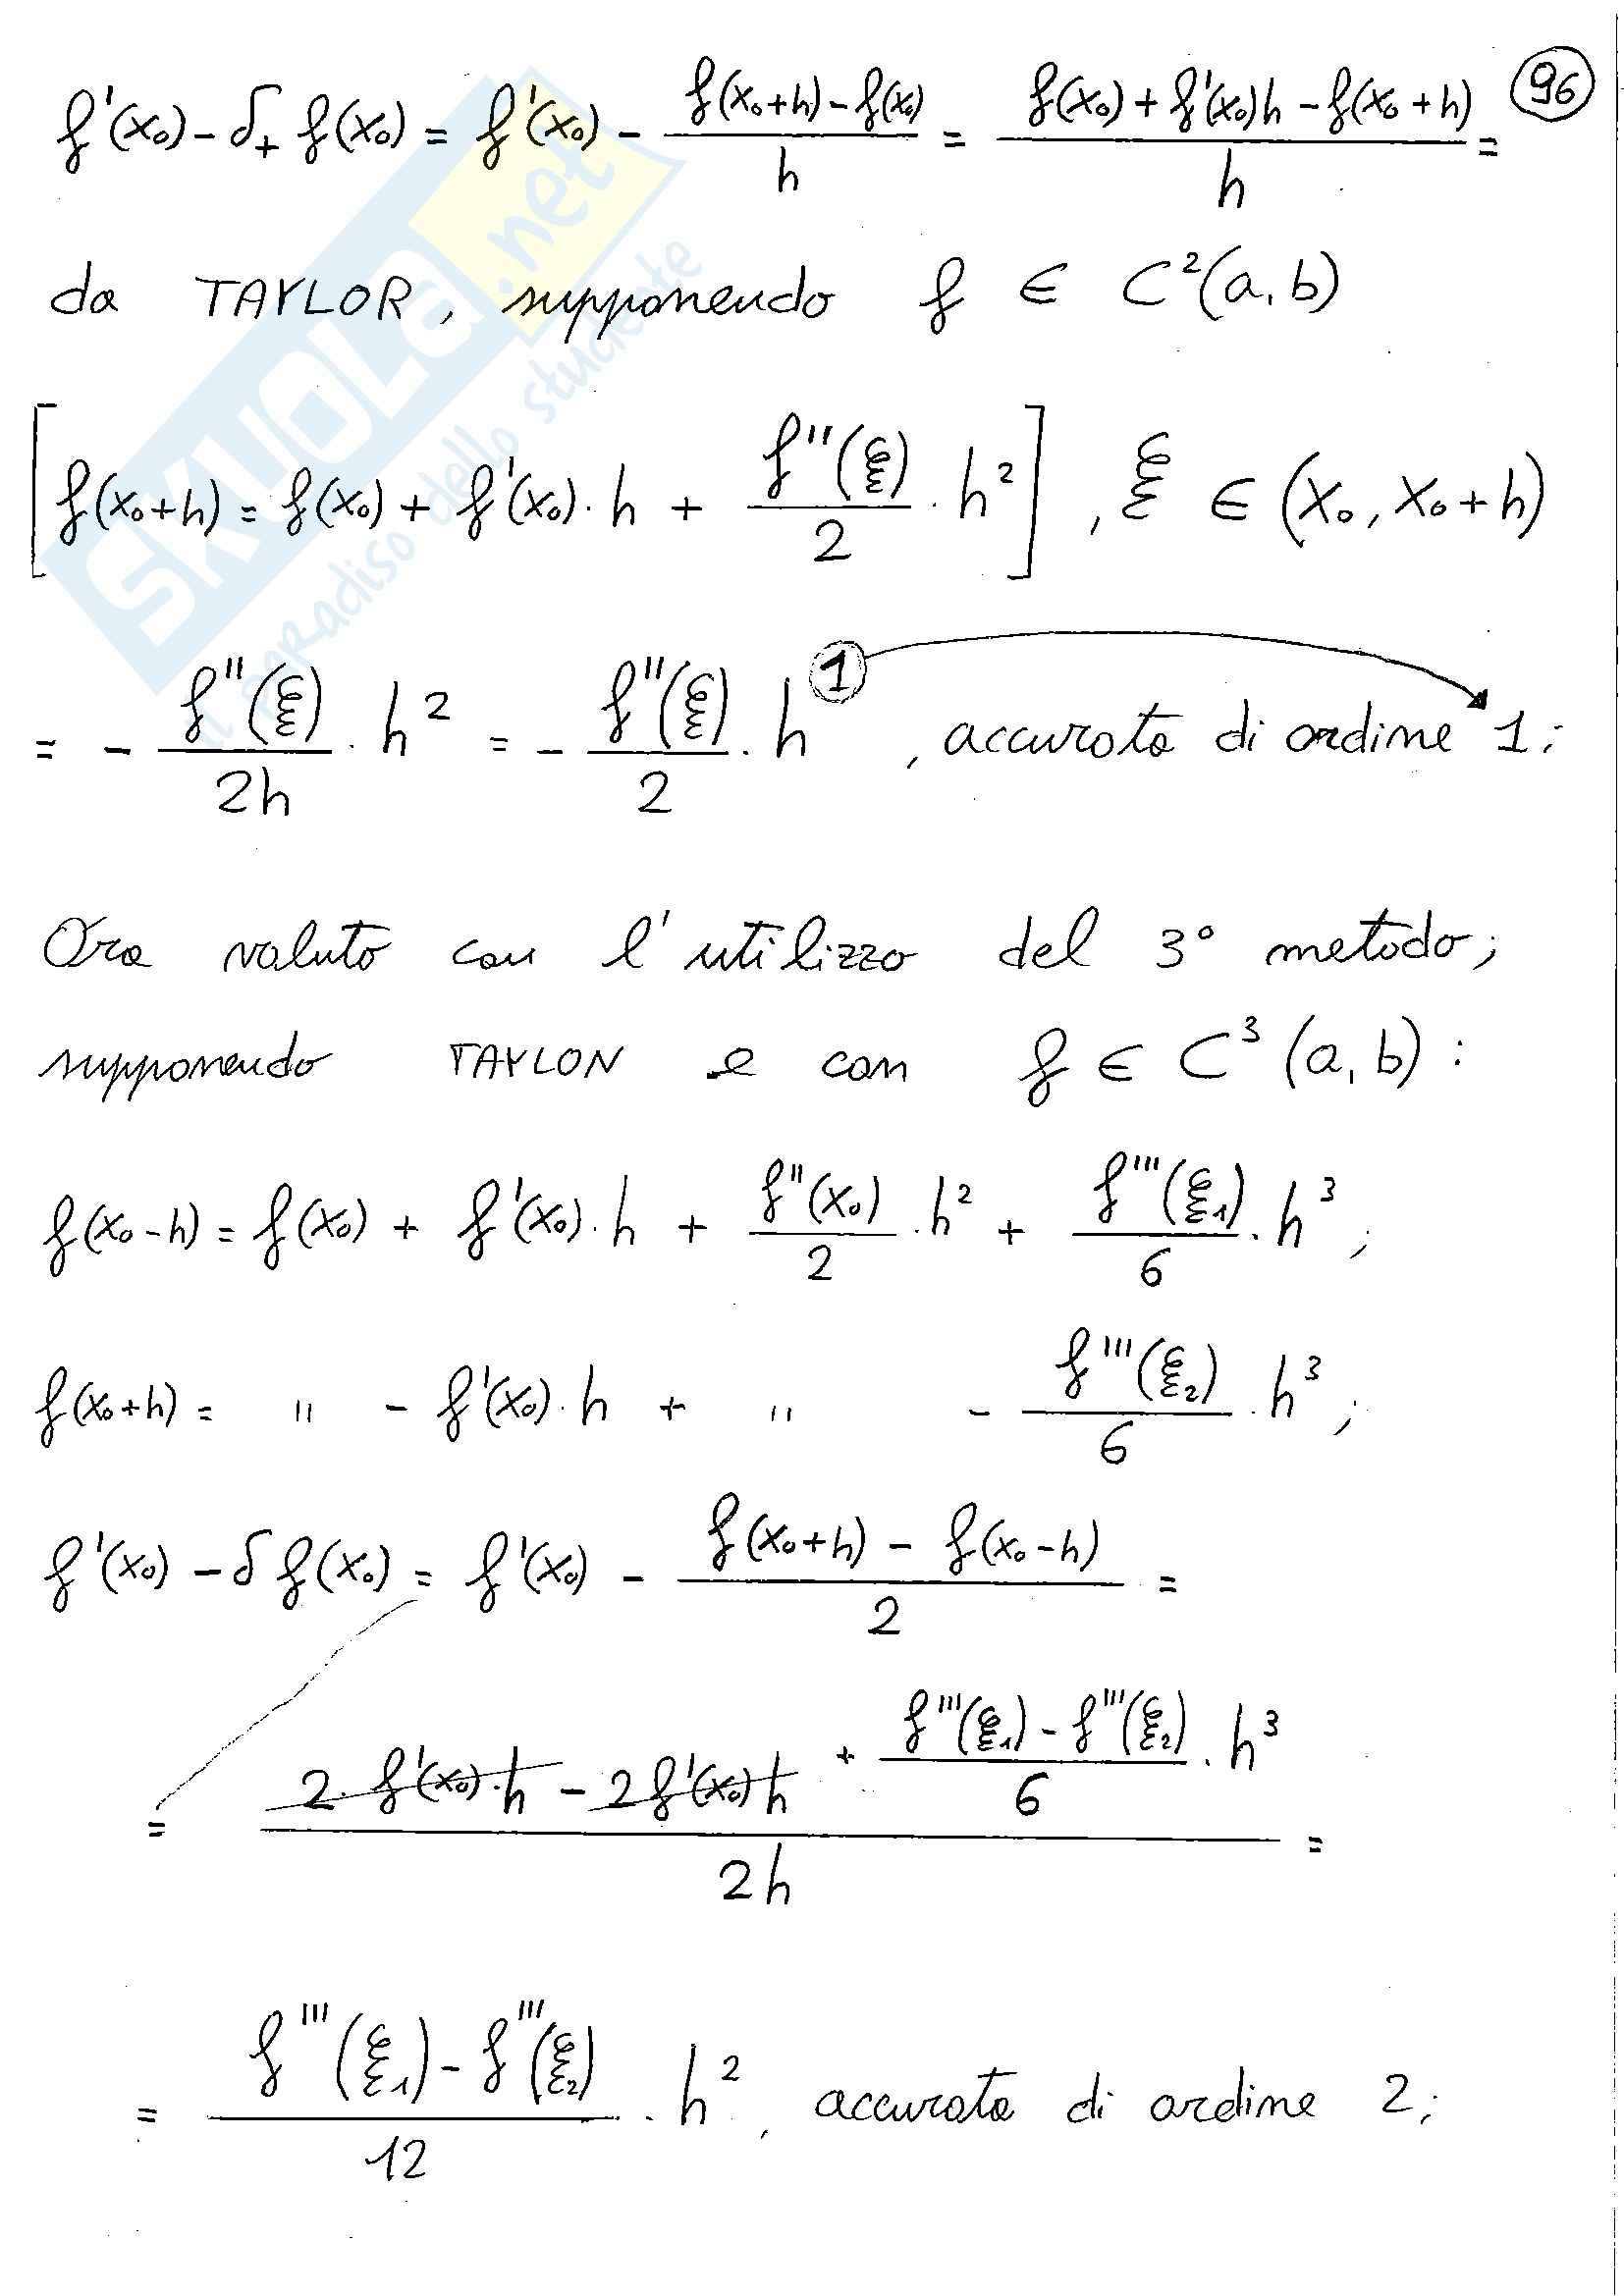 96
f'(x₀) - δ₊ f(x₀) = f'(x₀) - (f(x₀+h) - f(x₀))/h = (f(x₀) + f'(x₀)h - f(x₀+h))/h =
da TAYLOR, supponendo f ∈ C²(a,b)
[f(x₀+h) = f(x₀) + f'(x₀)·h + f''(ξ)/2 · h²], ξ ∈ (x₀, x₀+h)
= - f''(ξ)/2h · h² = - f''(ξ)/2 · h¹, accurata di ordine 1;
Ora valuto con l'utilizzo del 3° metodo;
supponendo TAYLON e con f ∈ C³(a,b):
f(x₀-h) = f(x₀) + f'(x₀)·h + f''(x₀)/2 · h² + f'''(ξ₁)/6 · h³;
f(x₀+h) = " - f'(x₀)·h + " - f'''(ξ₂)/6 · h³;
f'(x₀) - δ f(x₀) = f'(x₀) - (f(x₀+h) - f(x₀-h))/2 =
= (2·f'(x₀)·h - 2f'(x₀)h + (f'''(ξ₁) - f'''(ξ₂))/6 · h³)/2h =
= (f'''(ξ₁) - f'''(ξ₂))/12 · h², accurata di ordine 2;
SKUOLA.net
il paradiso dello studente